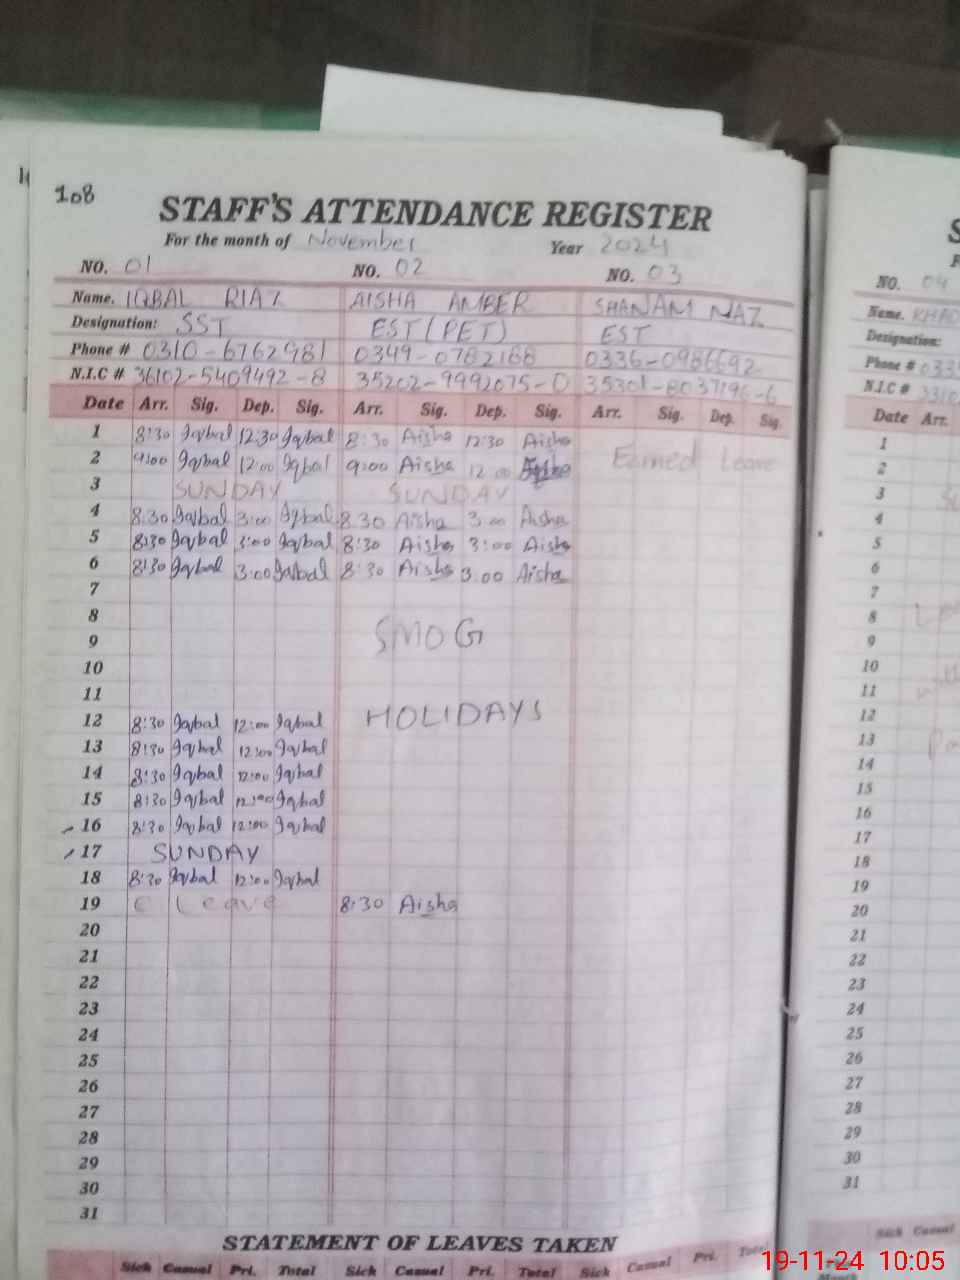 108
STAFF'S ATTENDANCE REGISTER
For the month of November Year 2024
NO. 01 NO. 02 NO. 03
Name. IQBAL RIAZ AISHA AMBER SHANAM NAZ
Designation: SST EST(PET) EST
Phone # 0310-6762981 0349-0782188 0336-0986692
N.I.C # 36102-5409492-8 35202-9992075-0 35301-8037196-6
Date Arr. Sig. Dep. Sig. Arr. Sig. Dep. Sig. Arr. Sig. Dep. Sig.
1 8:30 Iqbal 12:30 Iqbal 8:30 Aisha 12:30 Aisha Earned Leave
2 9:00 Iqbal 12:00 Iqbal 9:00 Aisha 12:00
3 SUNDAY SUNDAY
4 8:30 Iqbal 3:00 Iqbal 8.30 Aisha 3.00 Aisha
5 8:30 Iqbal 3:00 Iqbal 8:30 Aisha 3:00 Aisha
6 8:30 Iqbal 3:00 Iqbal 8:30 Aisha 3.00 Aisha
7
8
9 SMOG
10
11
12 8:30 Iqbal 12:00 Iqbal HOLIDAYS
13 8:30 Iqbal 12:00 Iqbal
14 8:30 Iqbal 12:00 Iqbal
15 8:30 Iqbal 12:00 Iqbal
16 8:30 Iqbal 12:00 Iqbal
17 SUNDAY
18 8:30 Iqbal 12:00 Iqbal
19 C Leave 8:30 Aisha
20
21
22
23
24
25
26
27
28
29
30
31
STATEMENT OF LEAVES TAKEN
Sick Casual Pri. Total Sick Casual Pri. Total Sick Casual Pri. Total
NO. 04
Name.
Designation:
Phone #
N.I.C #
Date Arr.
1
2
3
4
5
6
7
8
9
10
11
12
13
14
15
16
17
18
19
20
21
22
23
24
25
26
27
28
29
30
31
Sick Casual
19-11-24 10:05